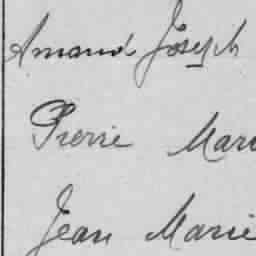 Amand Joseph
Pierre Mari
Jean Marie